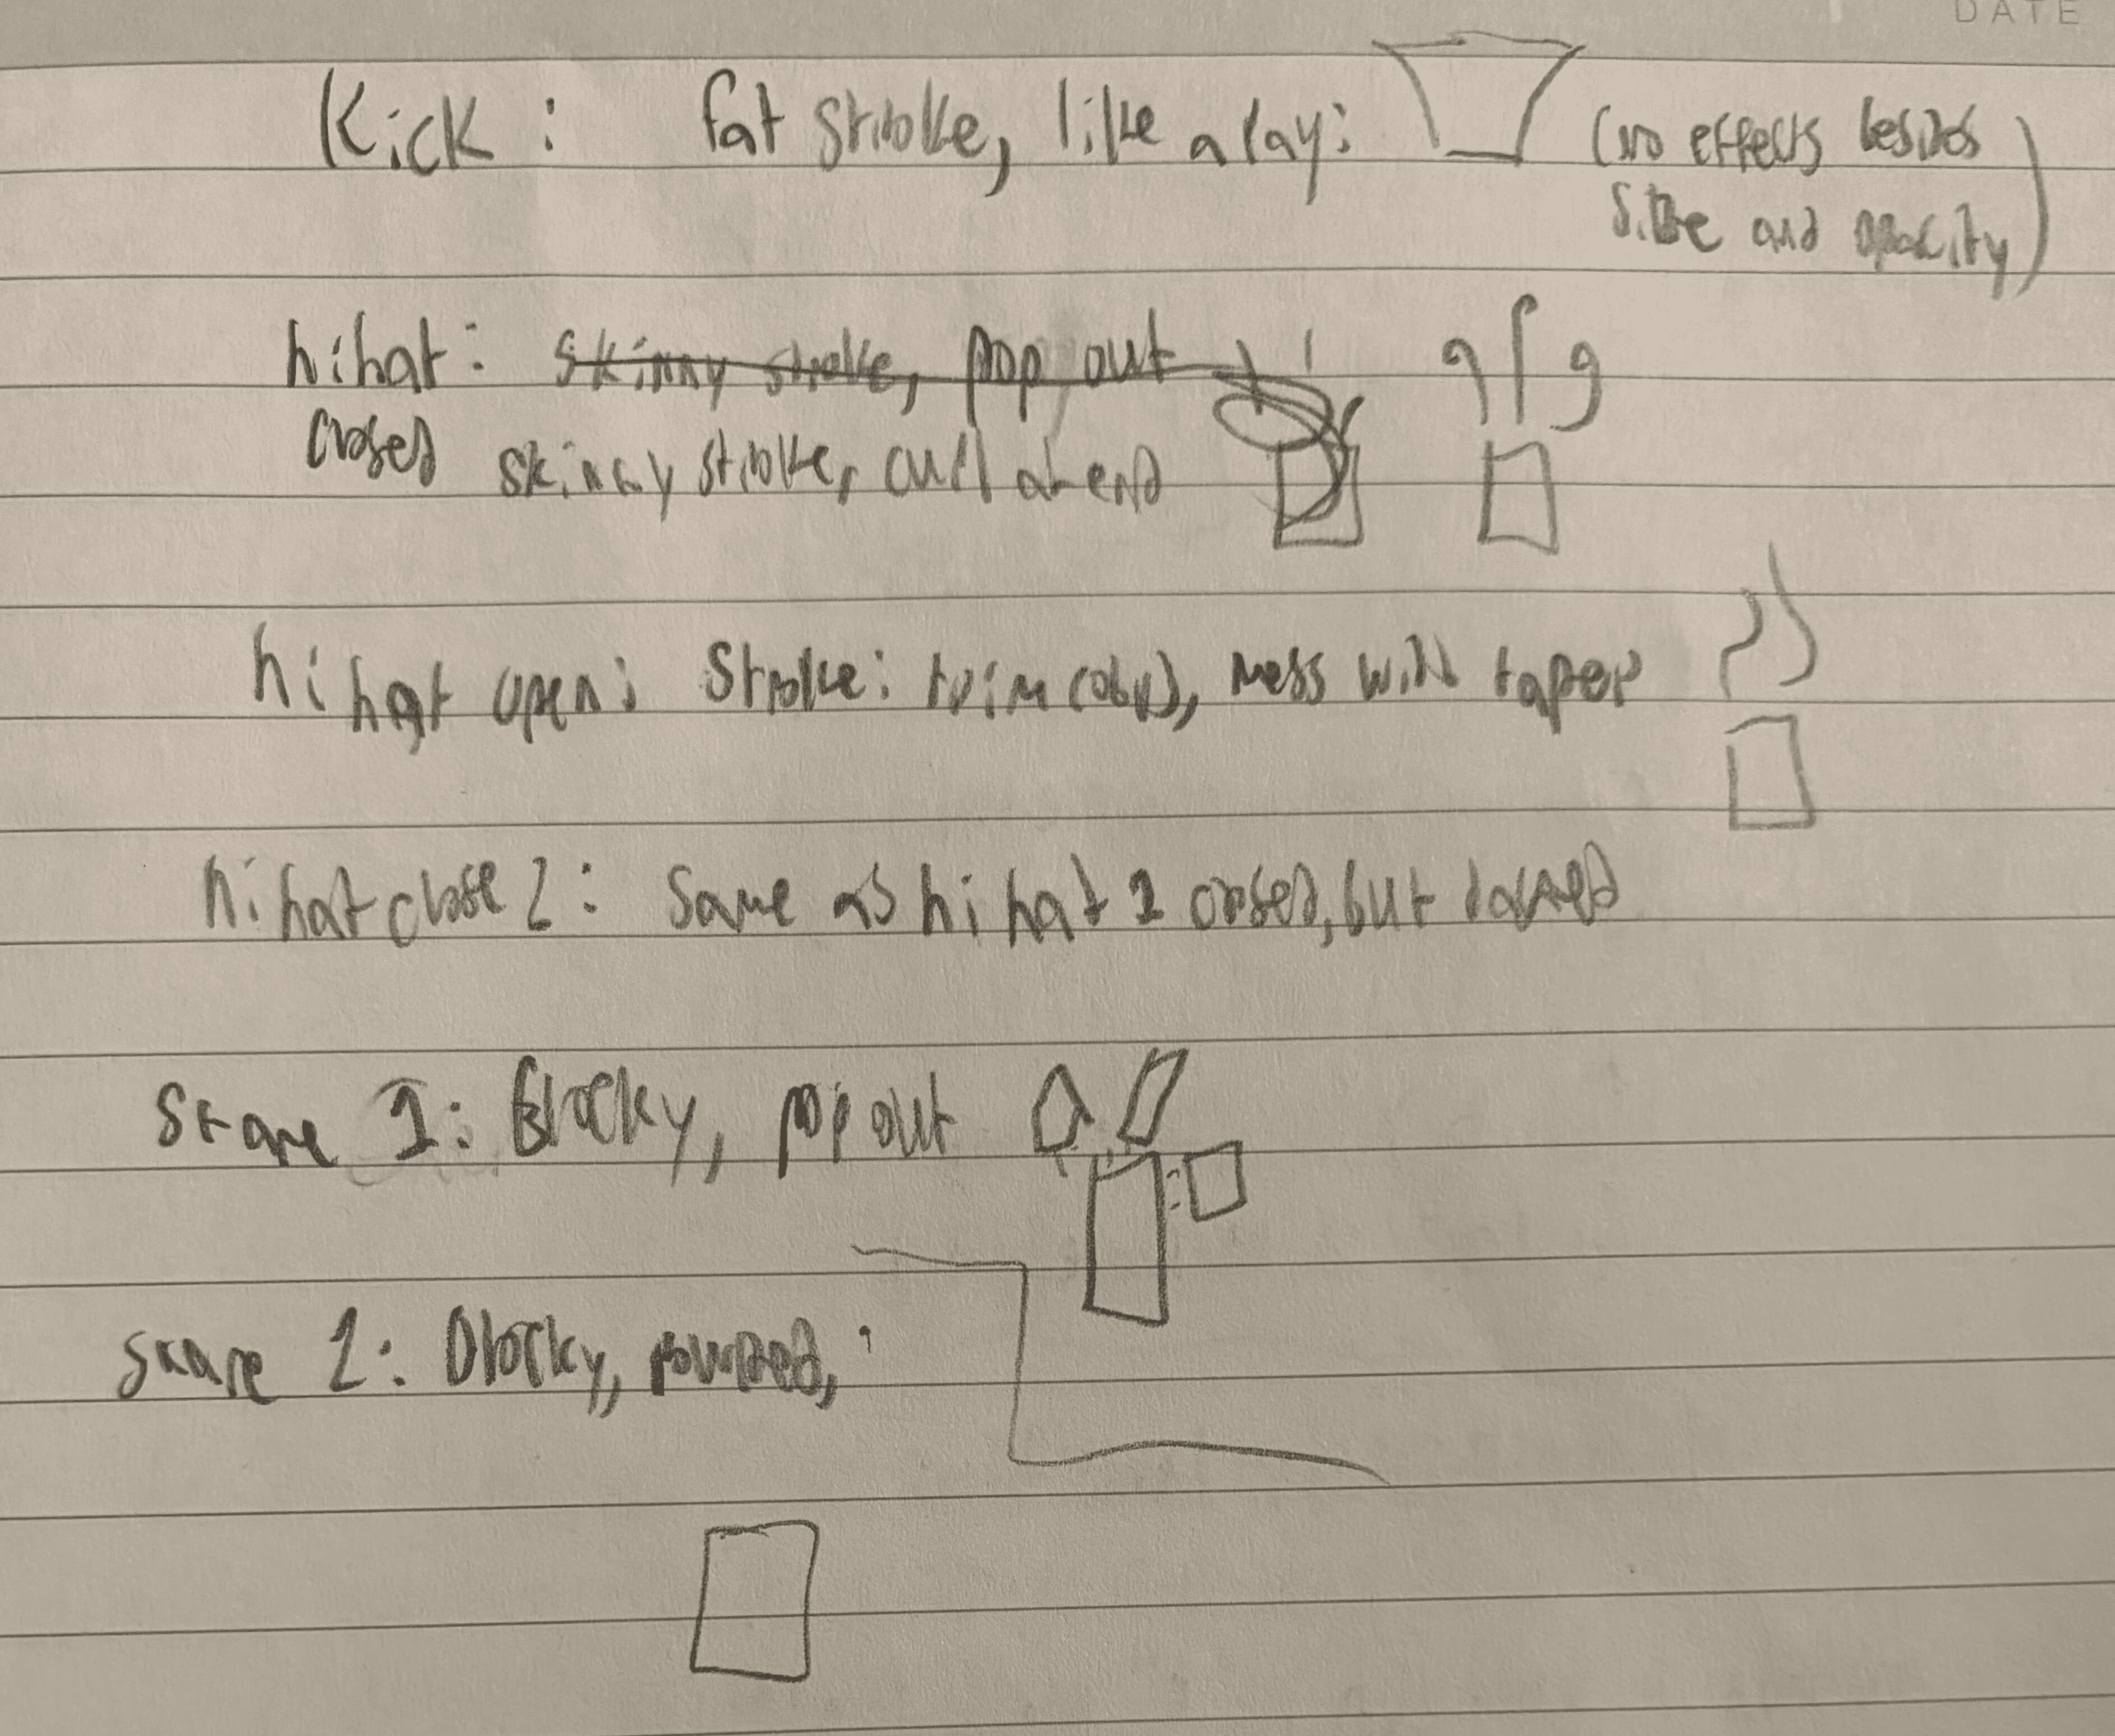 DATE
Kick: fat stroke, like a ray: (no effects besides
size and opacity)
hihat: skinny stroke, pop out
closed skinny stroke, curl at end
hi hat open: Stroke: trim (obv), mess with taper
hi hat close 2: Same as hi hat 1 closed, but
Snare 1: Blocky, pop out
snare 2: Blocky, rounded,